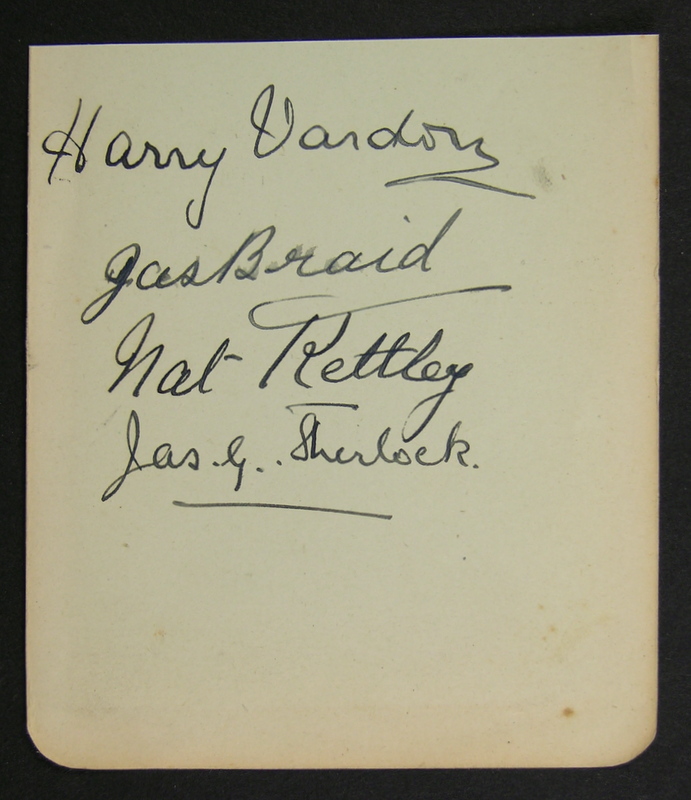 Harry Vardon
Jas Braid
Nat Kettley
Jas. G. Sherlock.